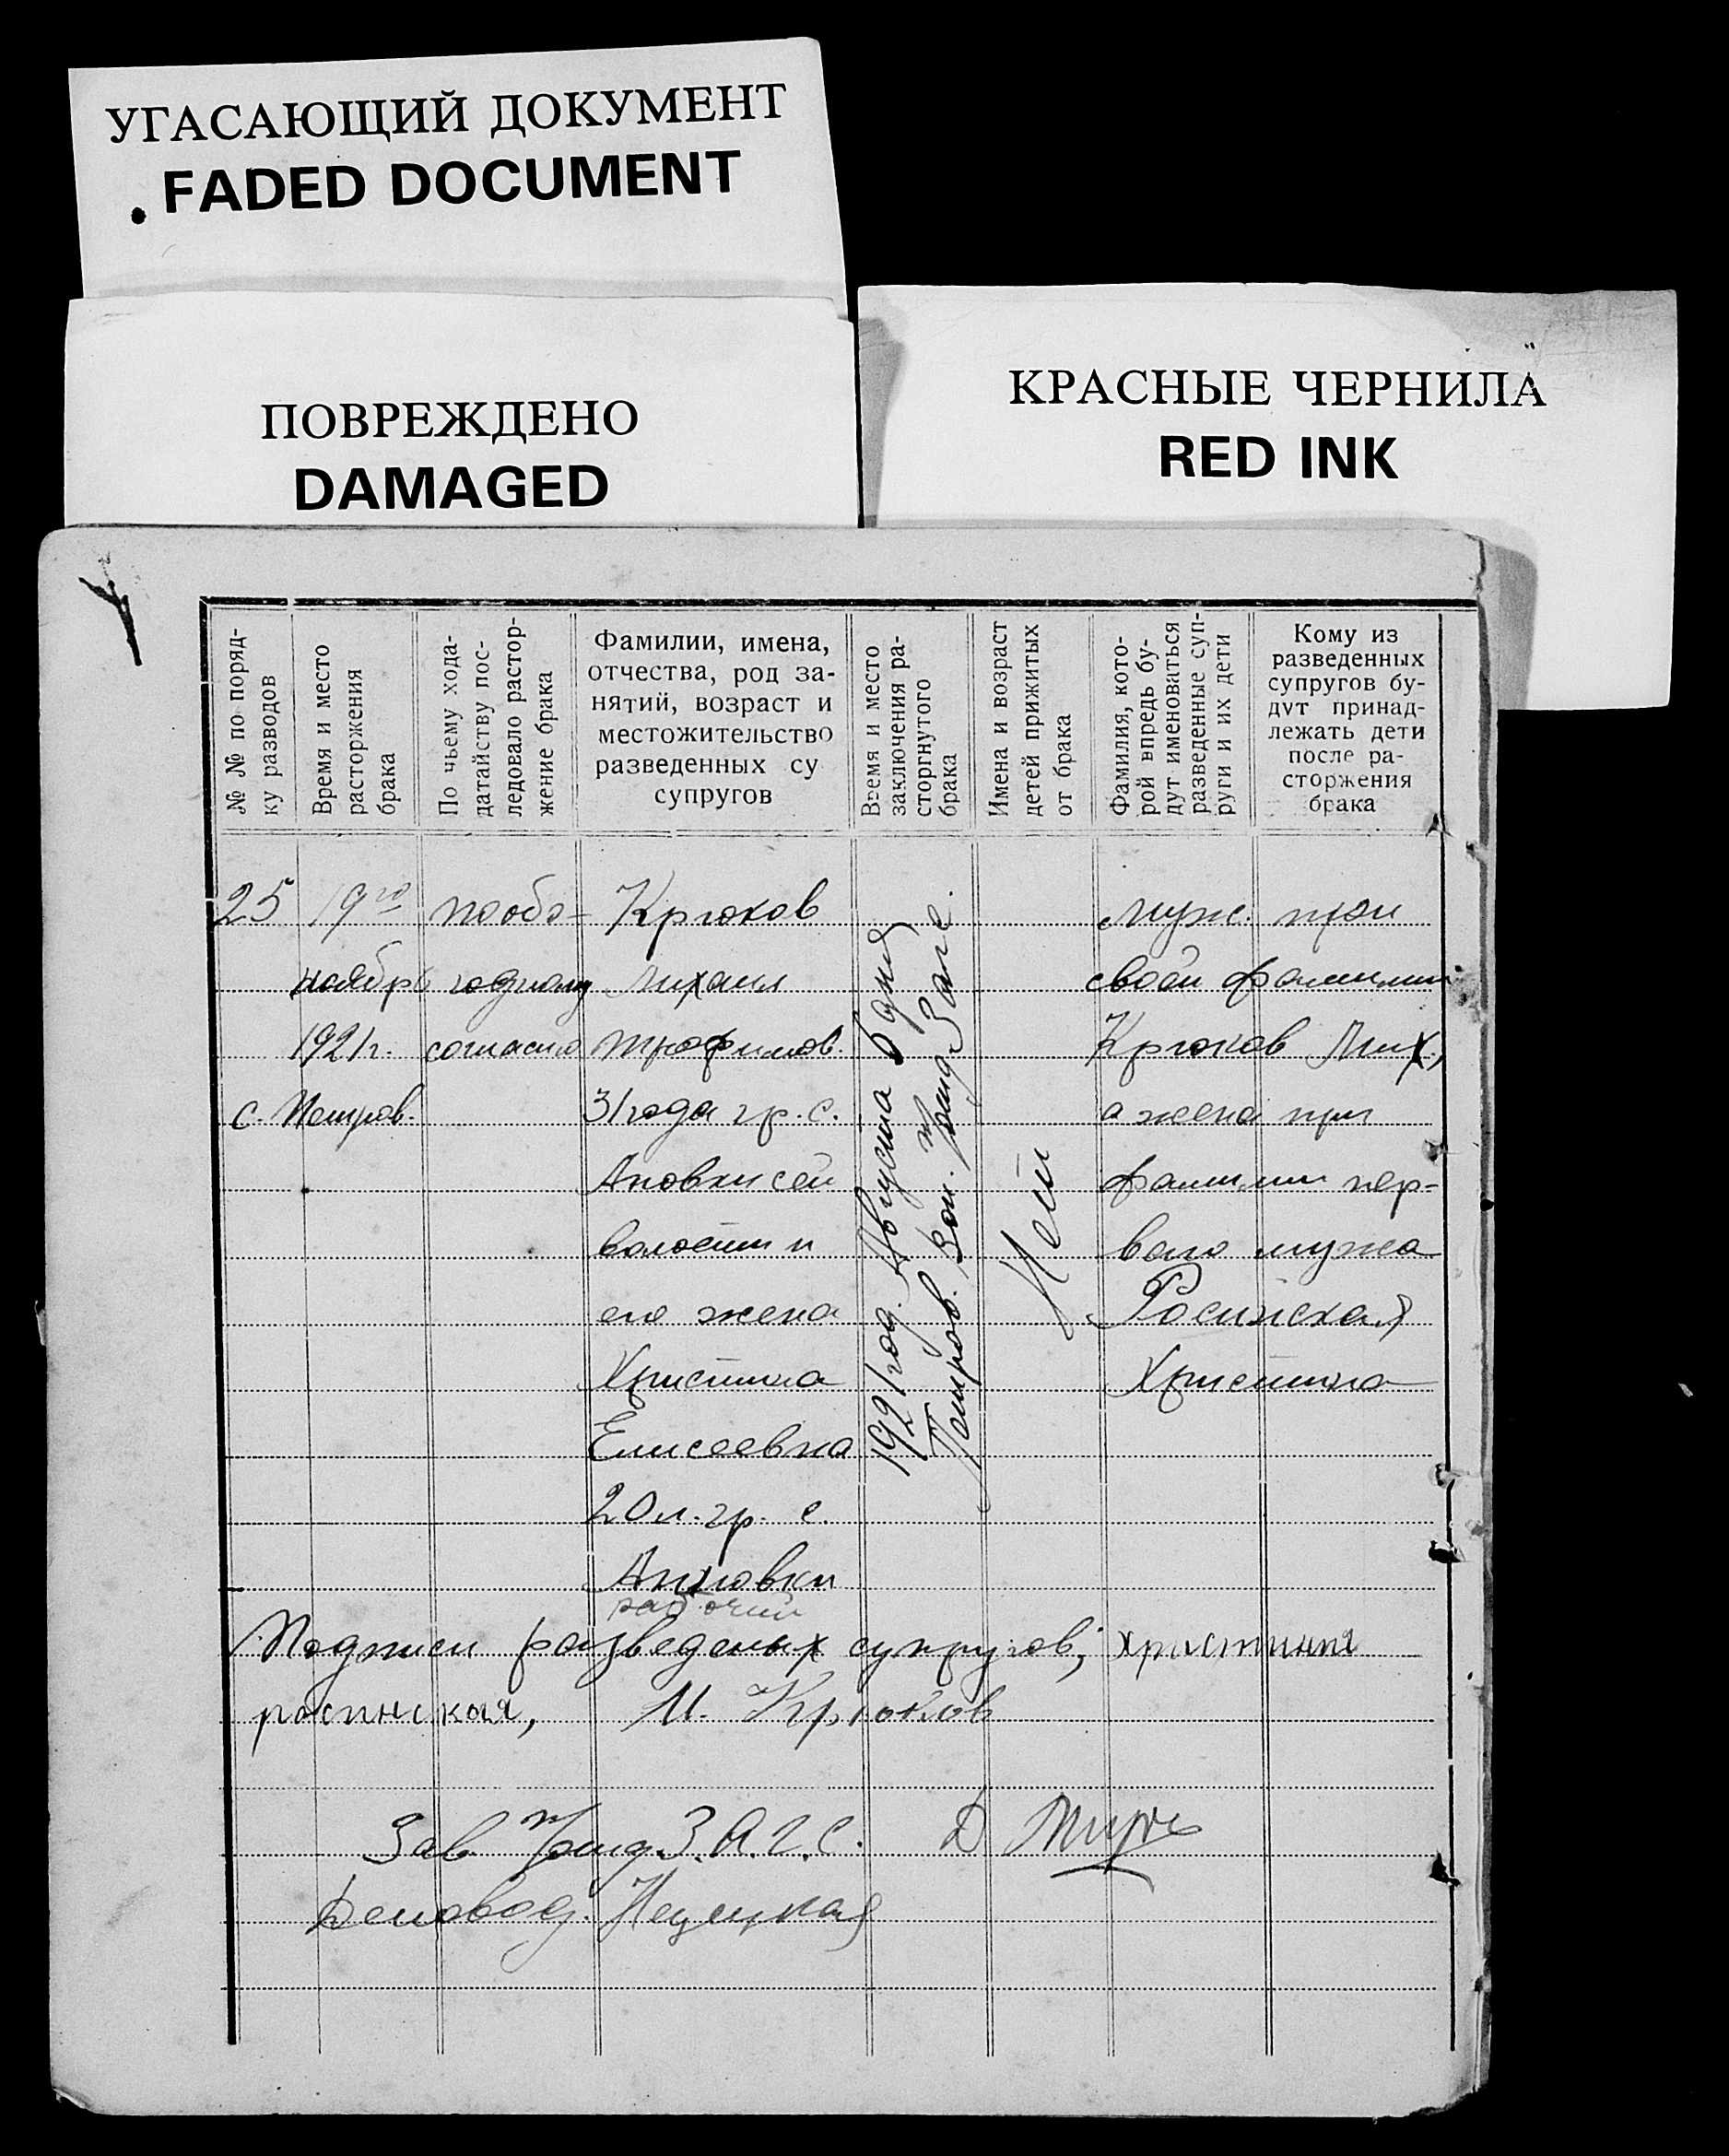 УГАСАЮЩИЙ ДОКУМЕНТ
FADED DOCUMENT
ПОВРЕЖДЕНО
DAMAGED
КРАСНЫЕ ЧЕРНИЛА
RED INK
№ № по поряд-
ку разводов
Время и место
расторжения
брака
По чьему хода-
датайству пос-
ледовало растор-
жение брака
Фамилии, имена,
отчества, род за-
нятий, возраст и
местожительство
разведенных су
супругов
Время и место
заключения ра-
сторгнутого
брака
Имена и возраст
детей прижитых
от брака
Фамилия, кото-
рой впредь бу-
дут именоваться
разведенные суп-
руги и их дети
Кому из
разведенных
супругов бу-
дут принад-
лежать дети
после ра-
сторжения
брака
25
19го
ноябрь
1921 г.
с. Петров.
пообо-
юдному
согласию
Крюков
Михаил
Трофимов.
31 года гр. с.
Аповки сей
волости и
его жена
Христина
Елисеевна
20 л. гр. с.
рабочий
1921 год. Августа 6 дня
Петров. Вол. Загс.
Нет
Муж. при
своей фамилии
Крюков Мих.,
а жена при
фамилии пер-
вого мужа
Росинская
Христина
Подписи разведеных супругов; христина
росинская, М. Крюков
Зав. З.А.Г.С.
Деловод.